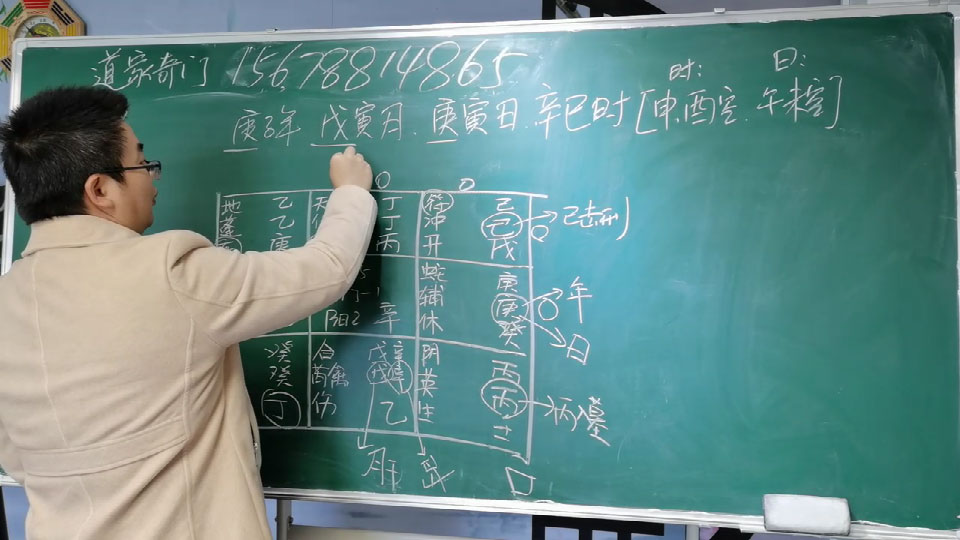 道家奇门 15678814865
时: 日:
庚子年 戊寅月. 庚寅日. 辛巳时 [申酉空. 午未空]
地 乙 天 丁 符 己
蓬 乙 丁 冲 己 → 己击刑
庚 丙 开 戊
蛇 庚 年
辅 庚
阳2 辛 休 癸 日
癸 合 戊 辛 阴 丙
癸 芮禽 戊 英 丙 → 丙入墓
丁 伤 乙 生 士
月干